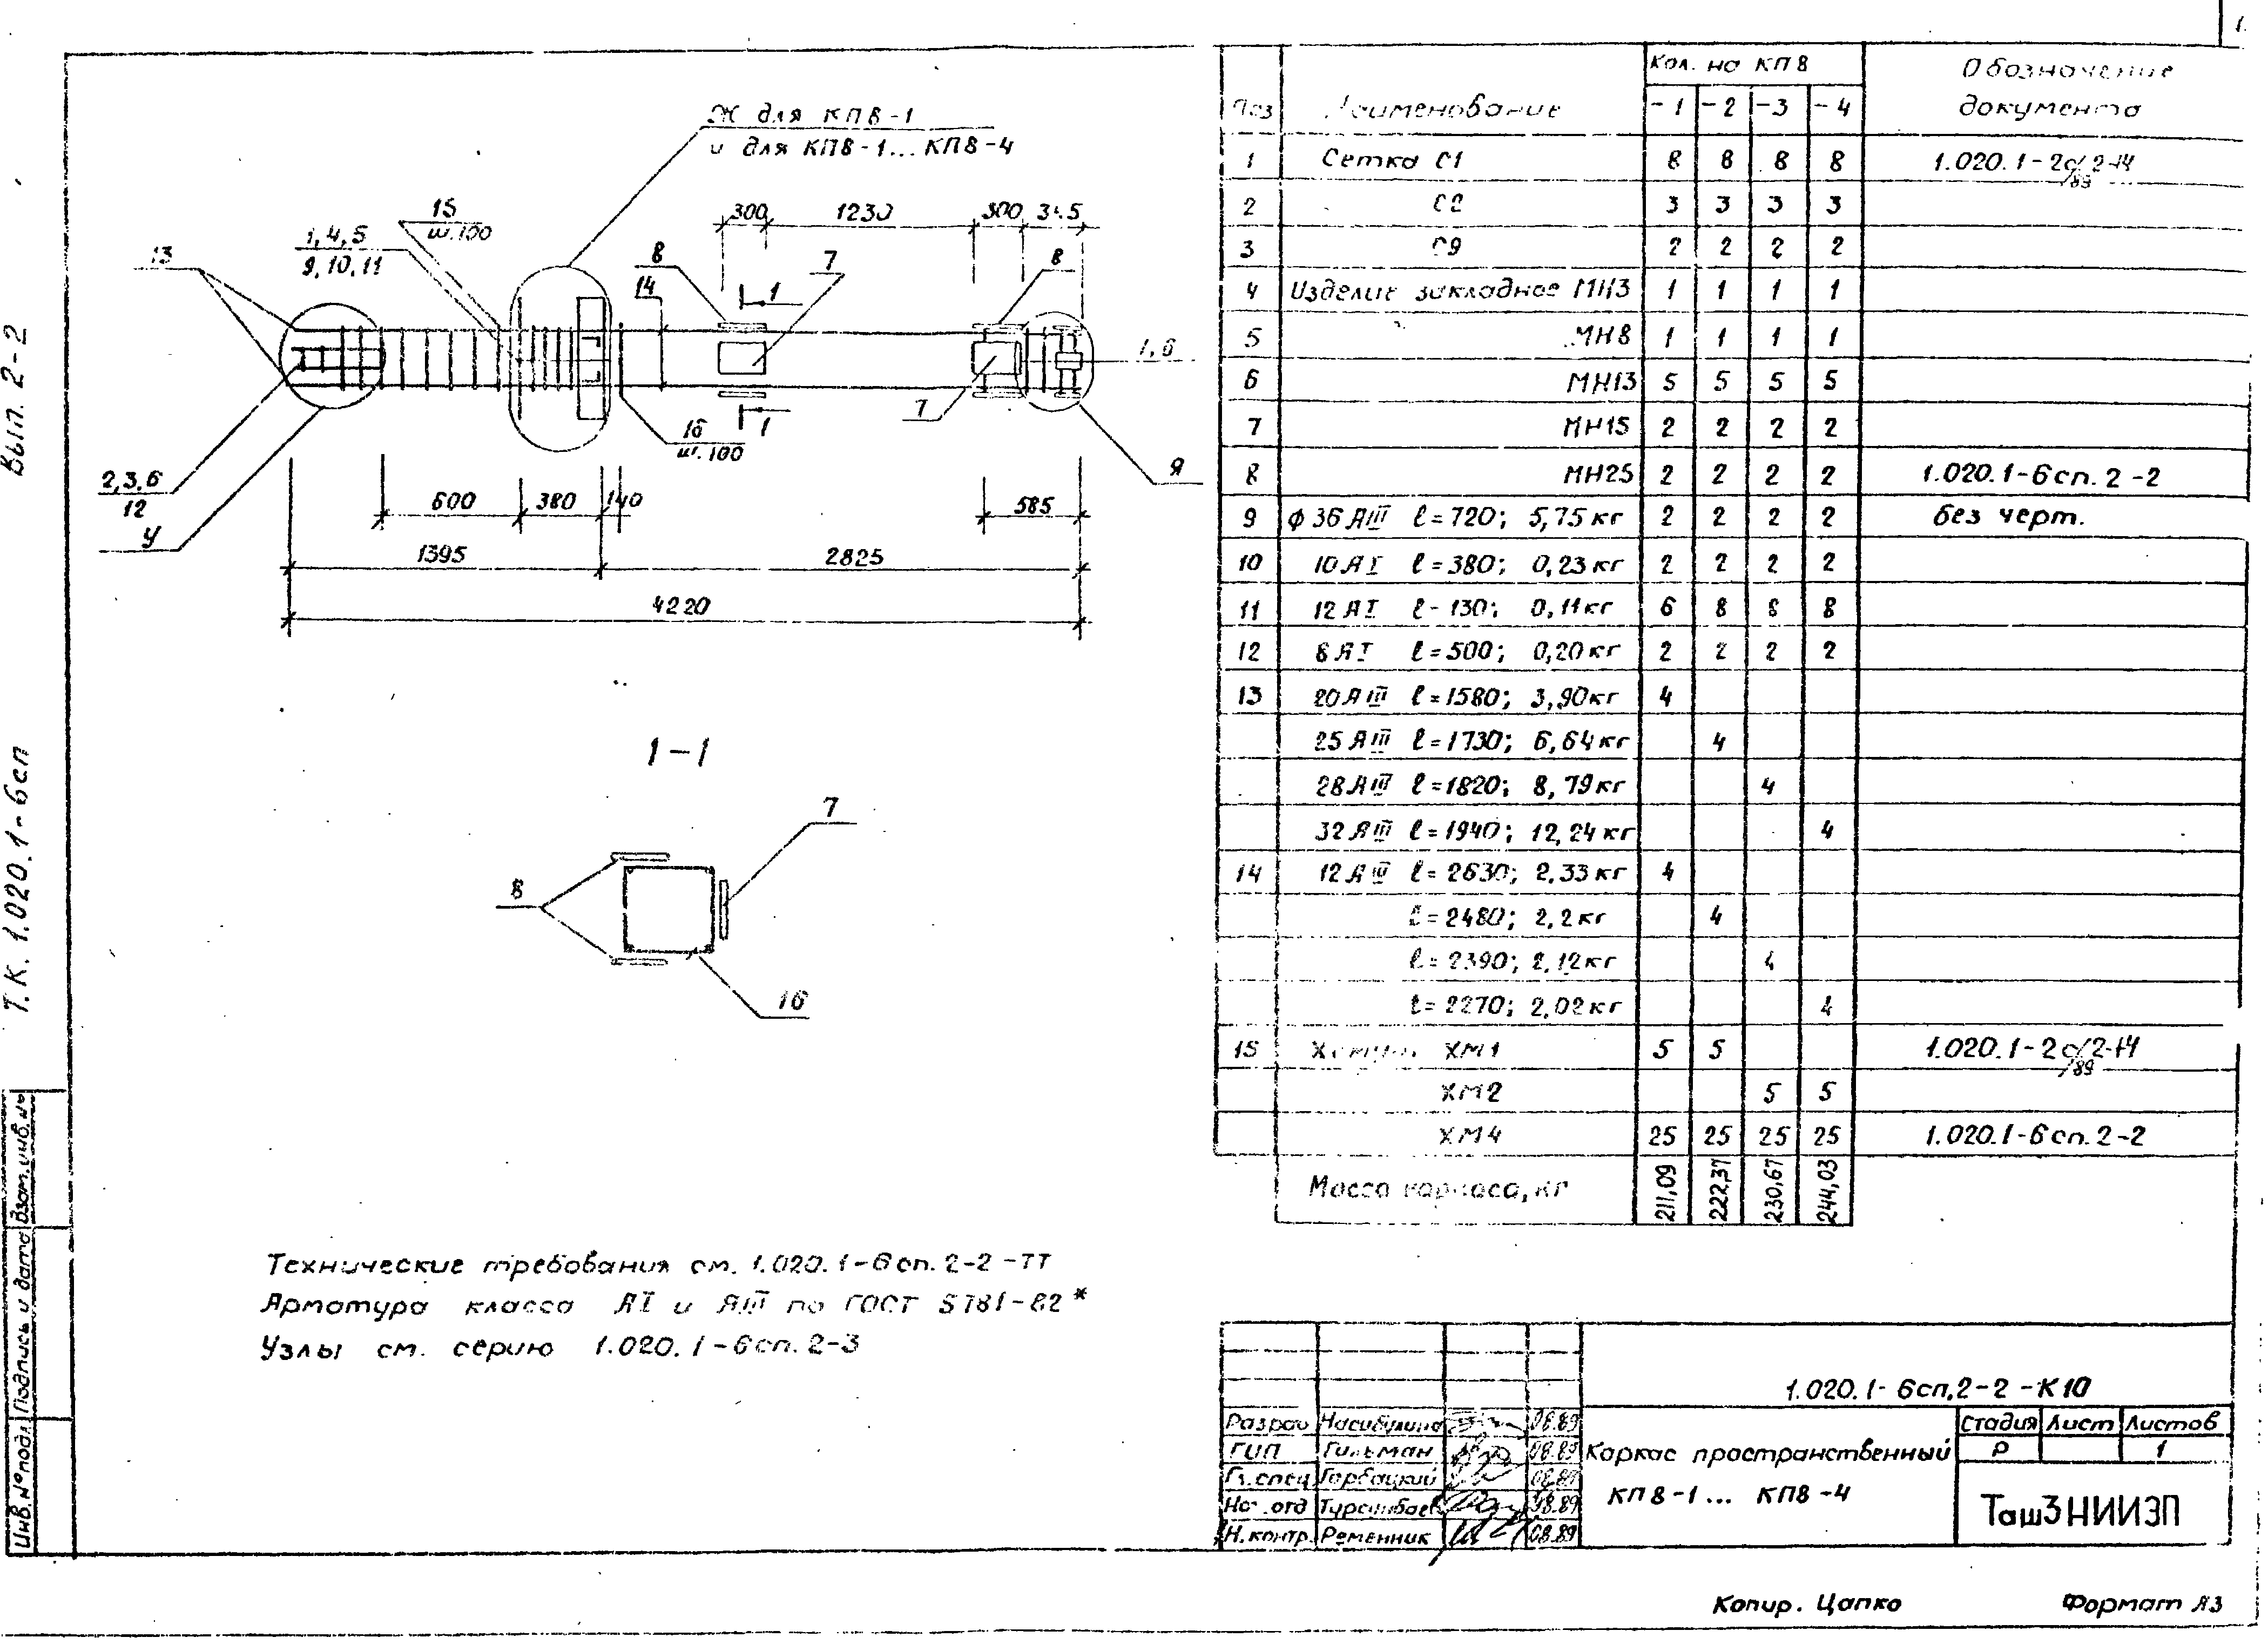 Вып. 2-2
Т.К. 1.020.1-6сп
Инв.№подл
Подпись и дата
Взам.инв.№
Ж для КП8-1
и для КП8-1...КП8-4
13
1,4,5
9,10,11
15
ш.100
8
14
300
1230
300
345
7
8
1
1
7
1,6
16
ш.100
Я
2,3,6
12
У
600
380
140
585
1395
2825
4220
1-1
7
8
16
Технические требования см. 1.020.1-6сп.2-2-ТТ
Арматура класса АI и АIII по ГОСТ 5781-82*
Узлы см. серию 1.020.1-6сп.2-3
Поз Наименование Кол. на КП8 Обозначение документа
-1 -2 -3 -4
1 Сетка С1 8 8 8 8 1.020.1-2с/89 2-14
2 С2 3 3 3 3
3 С9 2 2 2 2
4 Изделие закладное МН3 1 1 1 1
5 МН8 1 1 1 1
6 МН13 5 5 5 5
7 МН15 2 2 2 2
8 МН25 2 2 2 2 1.020.1-6сп.2-2
9 ф36АIII ℓ=720; 5,75кг 2 2 2 2 без черт.
10 10АI ℓ=380; 0,23кг 2 2 2 2
11 12АI ℓ-130; 0,11кг 6 8 8 8
12 8АI ℓ=500; 0,20кг 2 2 2 2
13 20АIII ℓ=1580; 3,90кг 4
25АIII ℓ=1730; 6,64кг 4
28АIII ℓ=1820; 8,79кг 4
32АIII ℓ=1940; 12,24кг 4
14 12АIII ℓ=2630; 2,33кг 4
ℓ=2480; 2,2кг 4
ℓ=2390; 2,12кг 4
ℓ=2270; 2,02кг 4
15 Хомут ХМ1 5 5 1.020.1-2с/89 2-14
ХМ2 5 5
ХМ4 25 25 25 25 1.020.1-6сп.2-2
Масса каркаса, кг 211,09 222,37 230,67 244,03
1.020.1-6сп.2-2-К10
Разраб Насибулина 08.89
ГИП Гильман 08.89
Гл.спец Горбацкий 08.89
Нач.отд Турсунбаев 08.89
Н.контр. Ременник 08.89
Каркас пространственный
КП8-1... КП8-4
Стадия Лист Листов
Р 1
ТашЗНИИЭП
Копир. Цапко
Формат А3